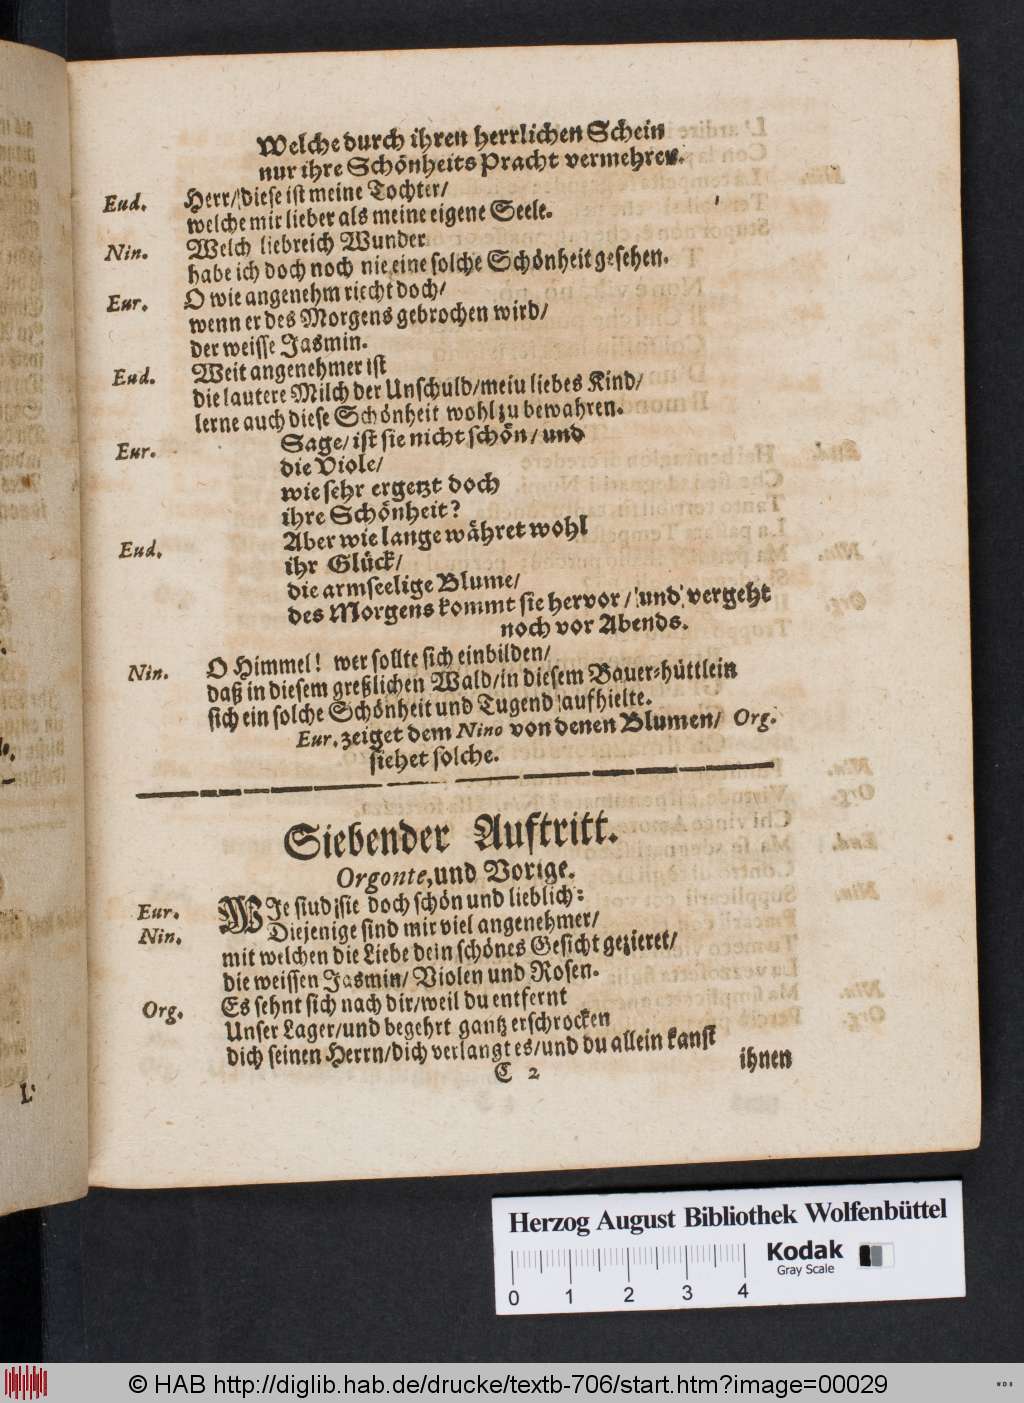 Welche durch ihren herrlichen Schein
nur ihre Schönheits Pracht vermehren.
Eud. Herr/ diese ist meine Tochter/
welche mir lieber als meine eigene Seele.
Nin. Welch liebreich Wunder
habe ich doch noch nie eine solche Schönheit gesehen.
Eur. O wie angenehm riecht doch/
wenn er des Morgens gebrochen wird/
der weisse Jasmin.
Eud. Weit angenehmer ist
die lautere Milch der Unschuld/meiu liebes Kind/
lerne auch diese Schönheit wohl zu bewahren.
Eur. Sage/ ist sie nicht schön/ und
die Viole/
wie sehr ergetzt doch
ihre Schönheit?
Eud. Aber wie lange währet wohl
ihr Glück/
die armseelige Blume/
des Morgens kommt sie hervor/ und vergeht
noch vor Abends.
Nin. O Himmel! wer sollte sich einbilden/
daß in diesem greßlichen Wald/in diesem Bauer-hüttlein
sich ein solche Schönheit und Tugend aufhielte.
Eur. zeiget dem Nino von denen Blumen/ Org.
siehet solche.
Siebender Auftritt.
Orgonte, und Vorige.
Eur. WIe siud sie doch schön und lieblich:
Nin. Diejenige sind mir viel angenehmer/
mit welchen die Liebe dein schönes Gesicht gezieret/
die weissen Jasmin/ Violen und Rosen.
Org. Es sehnt sich nach dir/weil du entfernt
Unser Lager/und begehrt gantz erschrocken
dich seinen Herrn/dich verlangt es/und du allein kanst
C 2 ihnen
Herzog August Bibliothek Wolfenbüttel
Kodak
Gray Scale
0 1 2 3 4
© HAB http://diglib.hab.de/drucke/textb-706/start.htm?image=00029